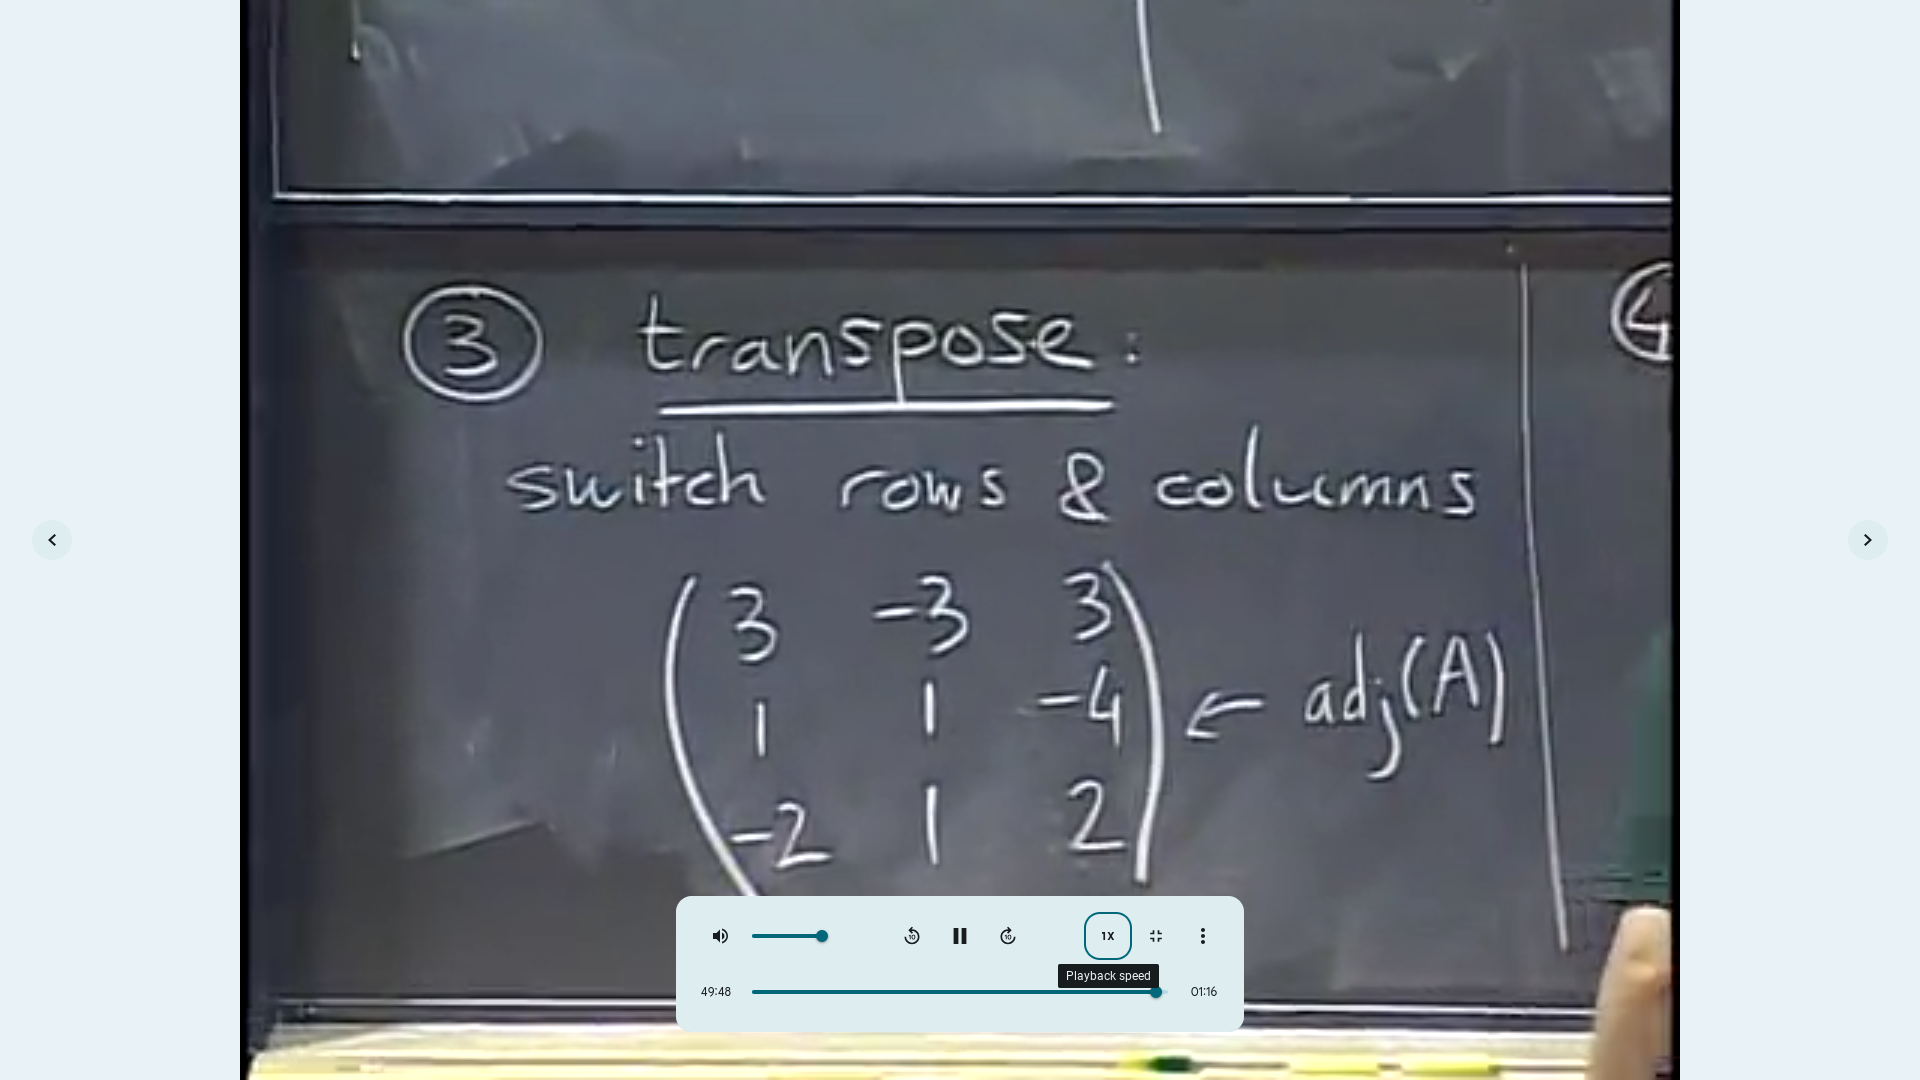 ③ transpose: ④
switch rows & columns
3 -3 3
1 1 -4 ← adj(A)
-2 1 2
10 10 1X
Playback speed
49:48 01:16